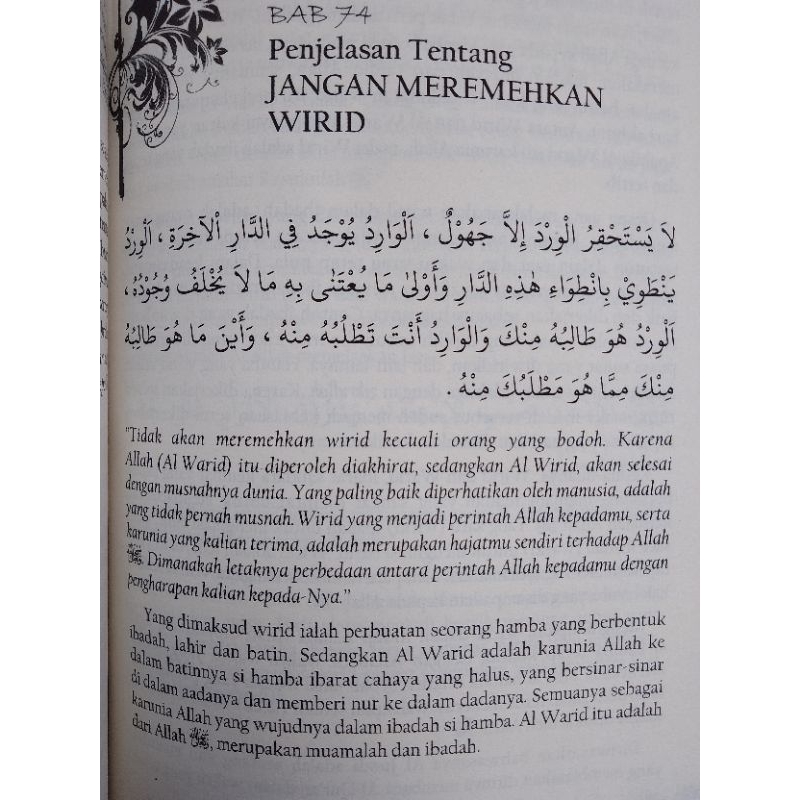 BAB 74
Penjelasan Tentang
JANGAN MEREMEHKAN
WIRID
لاَ يَسْتَحْقِرُ الْوِرْدَ إِلاَّ جَهُوْلٌ ، اَلْوَارِدُ يُوْجَدُ فِي الدَّارِ اْلآخِرَةِ ، اَلْوِرْدُ
يَنْطَوِيْ بِانْطِوَاءِ هٰذِهِ الدَّارِ وَأَوْلىٰ مَا يُعْتَنٰى بِهِ مَا لاَ يُخْلَفُ وُجُوْدُهُ ،
اَلْوِرْدُ هُوَ طَالِبُهُ مِنْكَ وَالْوَارِدُ أَنْتَ تَطْلُبُهُ مِنْهُ ، وَأَيْنَ مَا هُوَ طَالِبُهُ
مِنْكَ مِمَّا هُوَ مَطْلَبُكَ مِنْهُ .
"Tidak akan meremehkan wirid kecuali orang yang bodoh. Karena
Allah (Al Warid) itu diperoleh diakhirat, sedangkan Al Wirid, akan selesai
dengan musnahnya dunia. Yang paling baik diperhatikan oleh manusia, adalah
yang tidak pernah musnah. Wirid yang menjadi perintah Allah kepadamu, serta
karunia yang kalian terima, adalah merupakan hajatmu sendiri terhadap Allah
ﷻ. Dimanakah letaknya perbedaan antara perintah Allah kepadamu dengan
pengharapan kalian kepada-Nya."
Yang dimaksud wirid ialah perbuatan seorang hamba yang berbentuk
ibadah, lahir dan batin. Sedangkan Al Warid adalah karunia Allah ke
dalam batinnya si hamba ibarat cahaya yang halus, yang bersinar-sinar
di dalam aadanya dan memberi nur ke dalam dadanya. Semuanya sebagai
karunia Allah yang wujudnya dalam ibadah si hamba. Al Warid itu adalah
dari Allah ﷻ, merupakan muamalah dan ibadah.